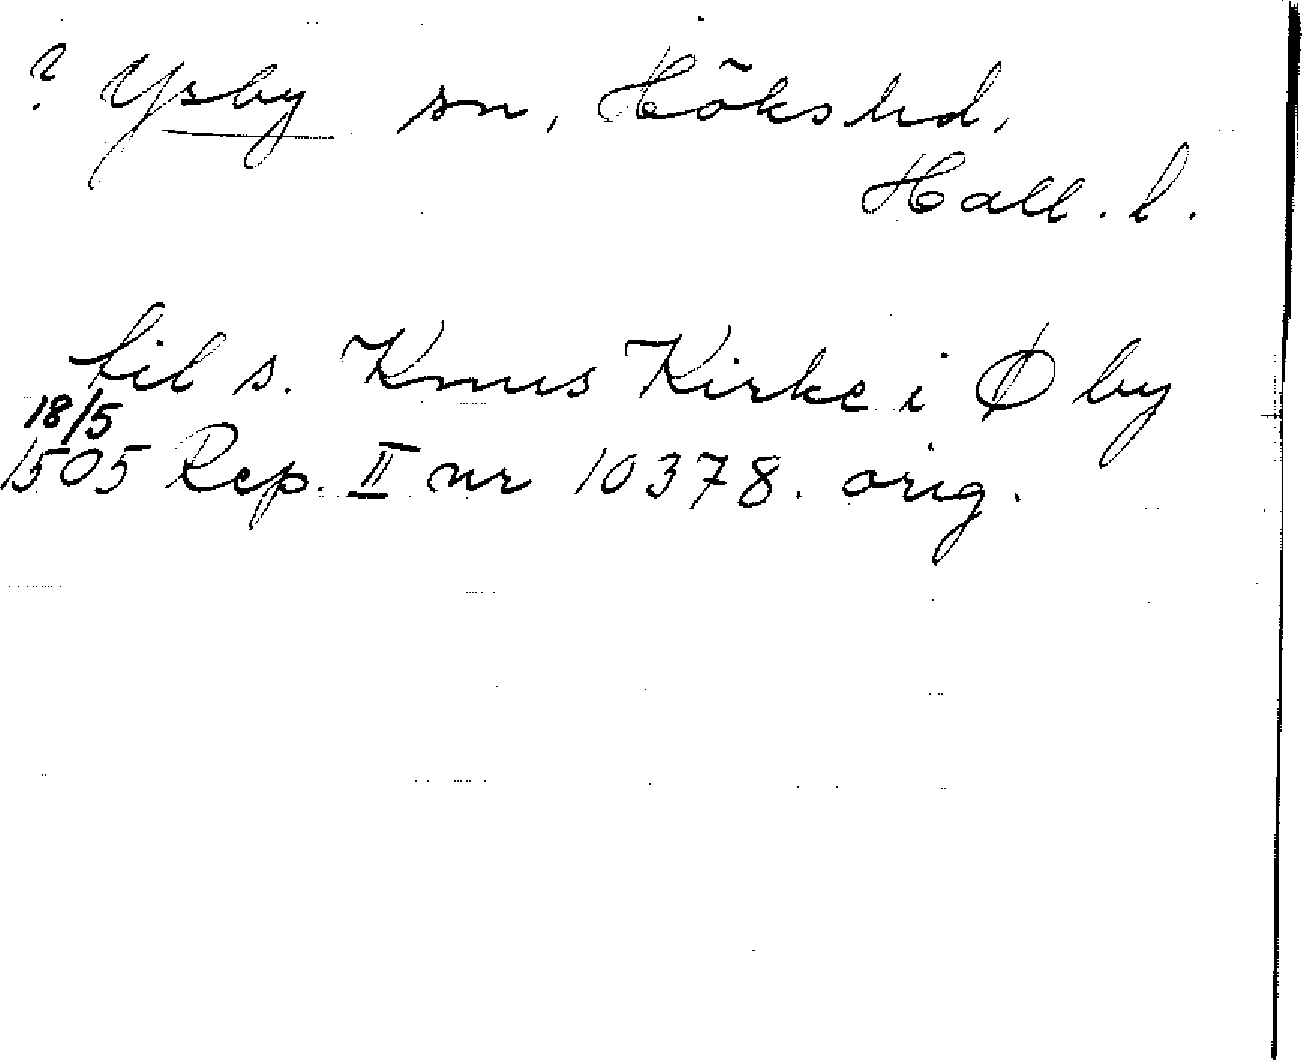 ? Ysby sn, Höks hd,
Hall. l.
til s. Knus Kirke i Øby
18/5
1505 Rep. II nr 10378. orig.